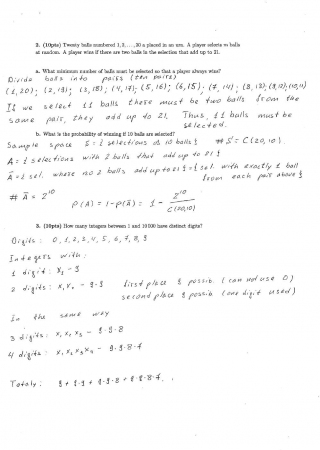 2. (10pts) Twenty balls numbered 1,2,...,20 a placed in an urn. A player selects m balls
at random. A player wins if there are two balls in the selection that add up to 21.
a. What minimum number of balls must be selected so that a player always wins?
Divide balls into pairs (ten pairs)
(1,20); (2,19); (3,18); (4,17); (5,16); (6,15); (7,14); (8,13); (9,12); (10,11)
If we select 11 balls there must be two balls from the
same pair, they add up to 21. Thus, 11 balls must be
selected.
b. What is the probability of winning if 10 balls are selected?
Sample space S = { selections of 10 balls } #S = C(20,10).
A = { selections with 2 balls that add up to 21 }
Ā = { sel. where no 2 balls add up to 21 } = { sel. with exactly 1 ball
from each pair above }
# Ā = 2^10
P(A) = 1 - P(Ā) = 1 - 2^10 / C(20,10)
3. (10pts) How many integers between 1 and 10 000 have distinct digits?
Digits: 0, 1, 2, 3, 4, 5, 6, 7, 8, 9
Integers with:
1 digit: x₁ - 9
2 digits: x₁ x₂ - 9·9 first place 9 possib. (can not use 0)
second place 9 possib. (one digit used)
In the same way
3 digits: x₁ x₂ x₃ - 9·9·8
4 digits: x₁ x₂ x₃ x₄ - 9·9·8·7
Totaly: 9 + 9·9 + 9·9·8 + 9·9·8·7.